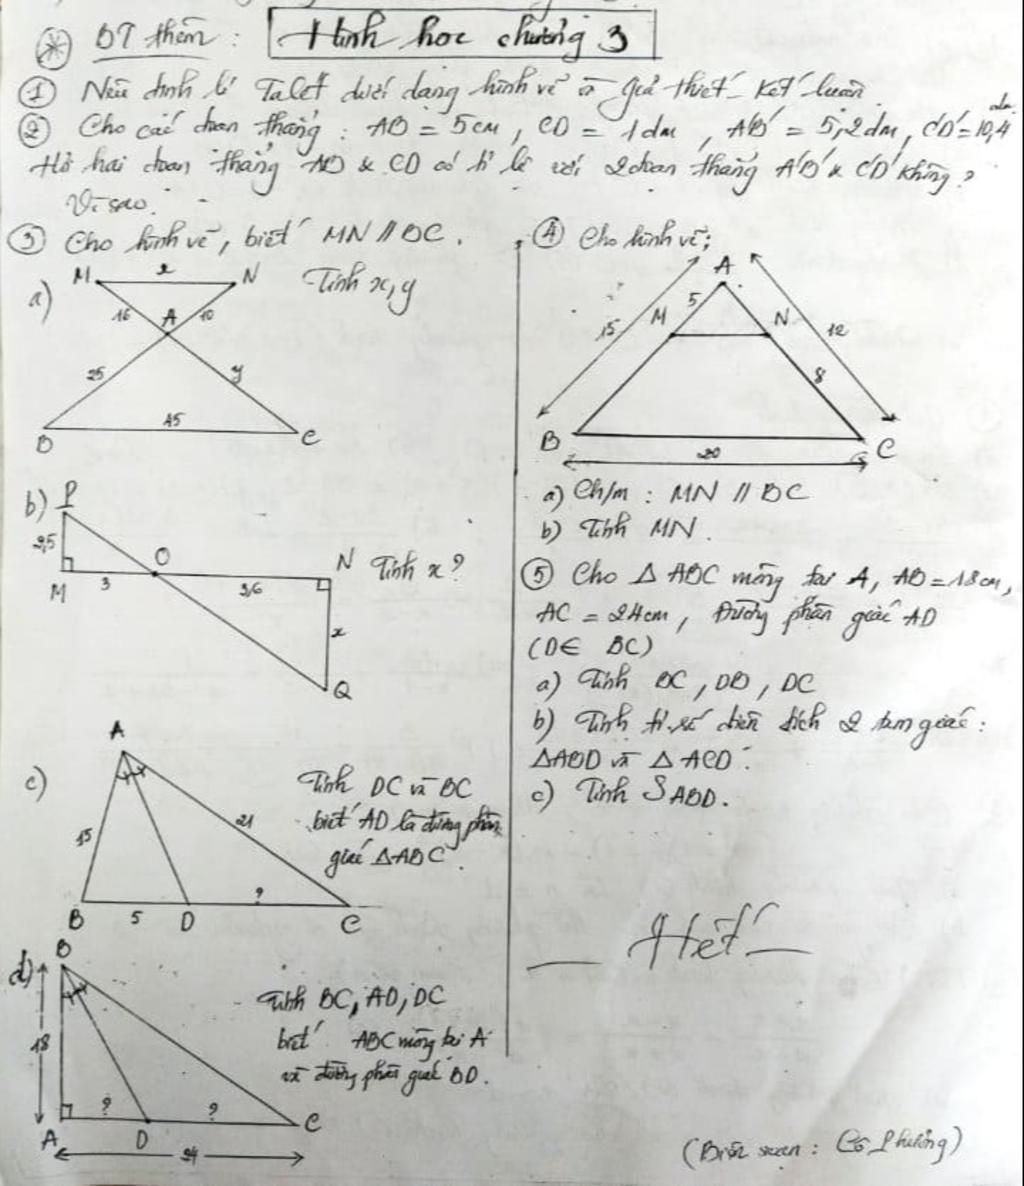 BT thêm : Hình học chương 3
① Nêu định lí Talet dưới dạng hình vẽ và giả thiết - kết luận
② Cho các đoạn thẳng : AB = 5cm , CD = 1dm , A'B' = 5,2dm , C'D' = 10,4 dm
Hỏi hai đoạn thẳng AB & CD có tỉ lệ với 2 đoạn thẳng A'B' & C'D' không ?
Vì sao.
③ Cho hình vẽ, biết MN // BC .
a) Tính x, y
M x N
16 A 10
25 y
B 45 C
b) P
2,5 O N Tính x ?
M 3 3,6
x
Q
c) A
Tính DC và BC
15 21 biết AD là đường phân
giác ΔABC .
B 5 D ? C
d) B
Tính BC, AD, DC
18 biết ABC vuông tại A
và đường phân giác BD.
A ? D ? C
24
④ Cho hình vẽ;
A
15 5 12
M N
8
B C
20
a) Ch/m : MN // BC
b) Tính MN .
⑤ Cho Δ ABC vuông tại A, AB = 18cm,
AC = 24cm , Đường phân giác AD
(D ∈ BC)
a) Tính BC , DB , DC
b) Tính tỉ số diện tích 2 tam giác :
ΔABD và Δ ACD .
c) Tính S ABD .
— Hết —
(Biên soạn : Cô Phượng)